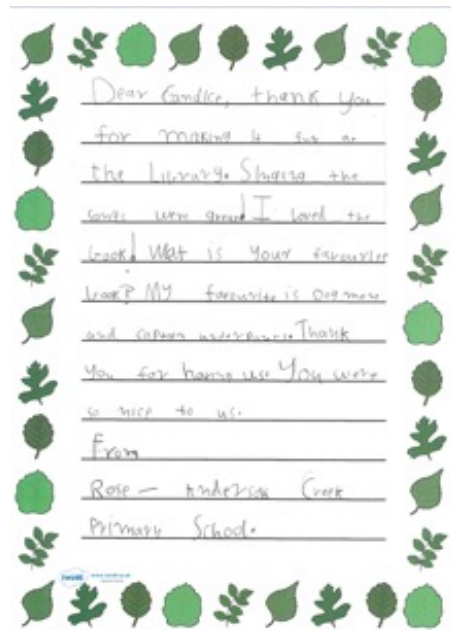 Dear Candice, thank you
for making it fun at
the Library. Singing the
songs were great! I loved the
book! Wat is your favourite
book? My favourite is Dog man
and captain underpants. Thank
you for having us. You were
so nice to us.
From
Rose — Anderson Creek
Primary School.